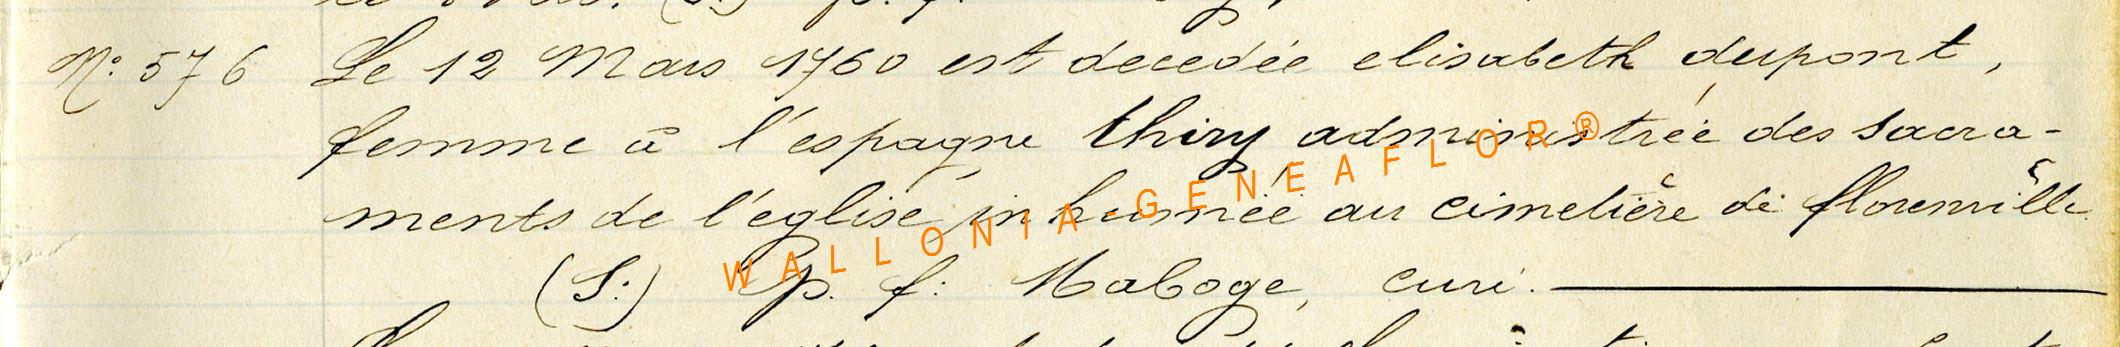 N° 576 Le 12 Mars 1760 est decedée elisabeth dupont,
femme à l'espagne thiry administrée des sacra-
ments de l'église, inhumée au cimetière de florenville
(S:) p. f: Maboge, curé.
WALLONIA-GENEAFLOR®